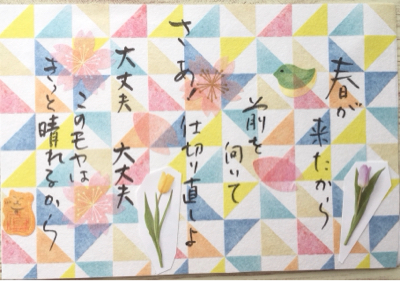 春が
来たから
前を
向いて
さあ!仕切り直しよ
大丈夫 大丈夫
このモヤは
きっと晴れるから